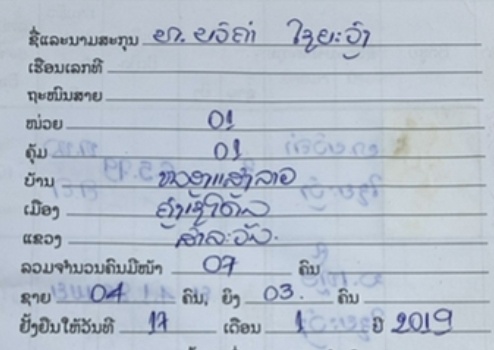 ຊື່ແລະນາມສະກຸນ ຍາ. ບົວຄຳ ໄຊຍະວົງ
ເຮືອນເລກທີ
ຖະໜົນສາຍ
ໜ່ວຍ 01
ຄຸ້ມ 01
ບ້ານ
ເມືອງ
ແຂວງ ສາລະວັນ.
ລວມຈຳນວນຄົນມີໜ້າ 07 ຄົນ
ຊາຍ 04 ຄົນ, ຍິງ 03. ຄົນ
ຢັ້ງຢືນໃຫ້ວັນທີ 17 ເດືອນ 1 ປີ 2019